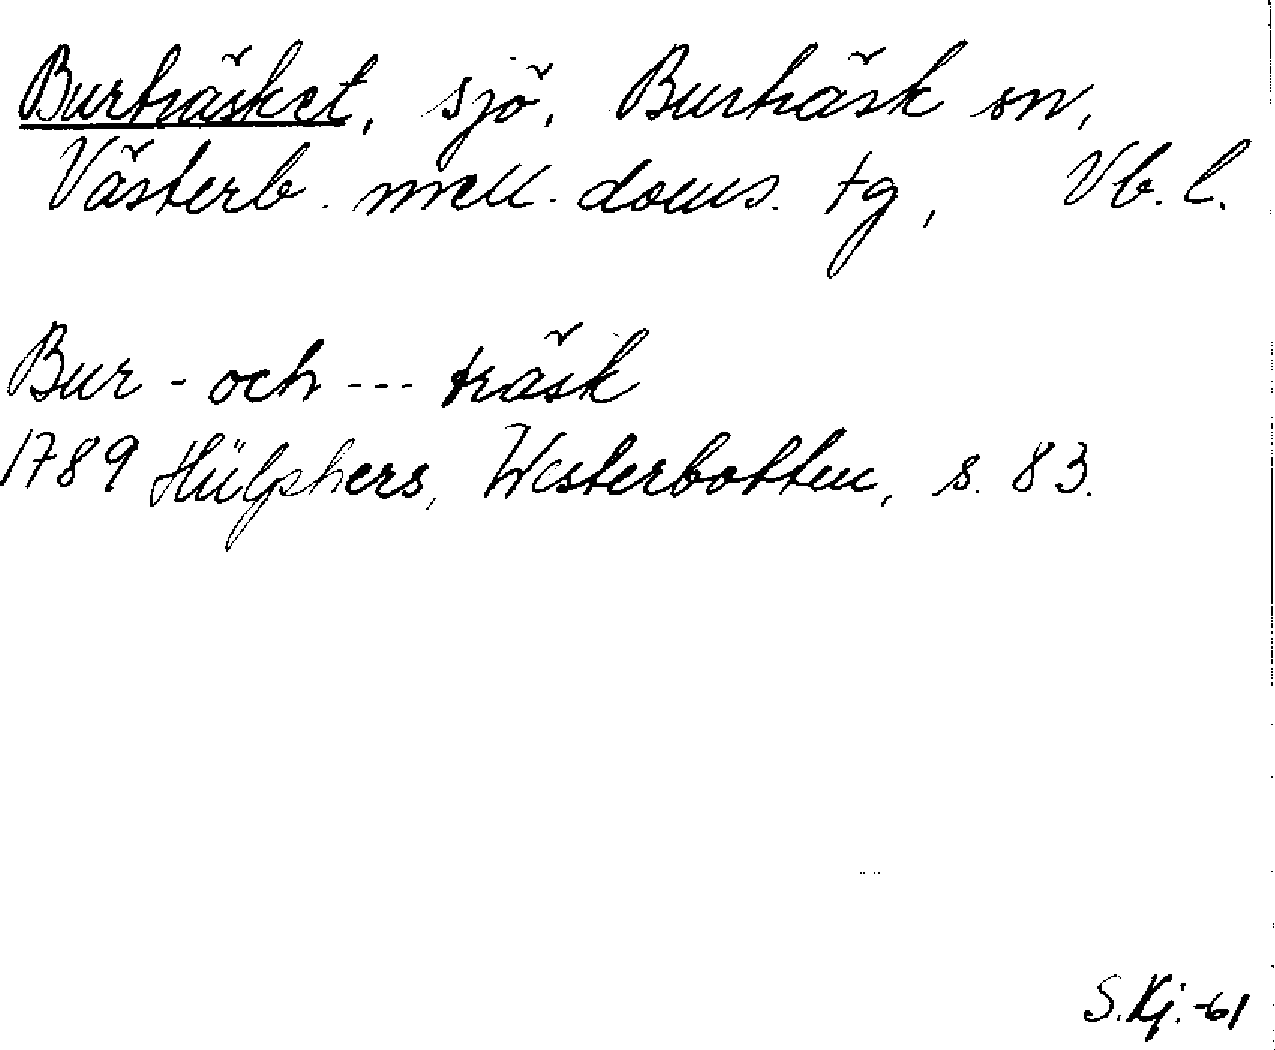 Burträsket, sjö, Burträsk sn,
Västerb. mell. doms. tg, Vb. l.
Bur - och --- träsk
1789 Hülphers, Westerbotten, s. 83.
S.Kj.-61